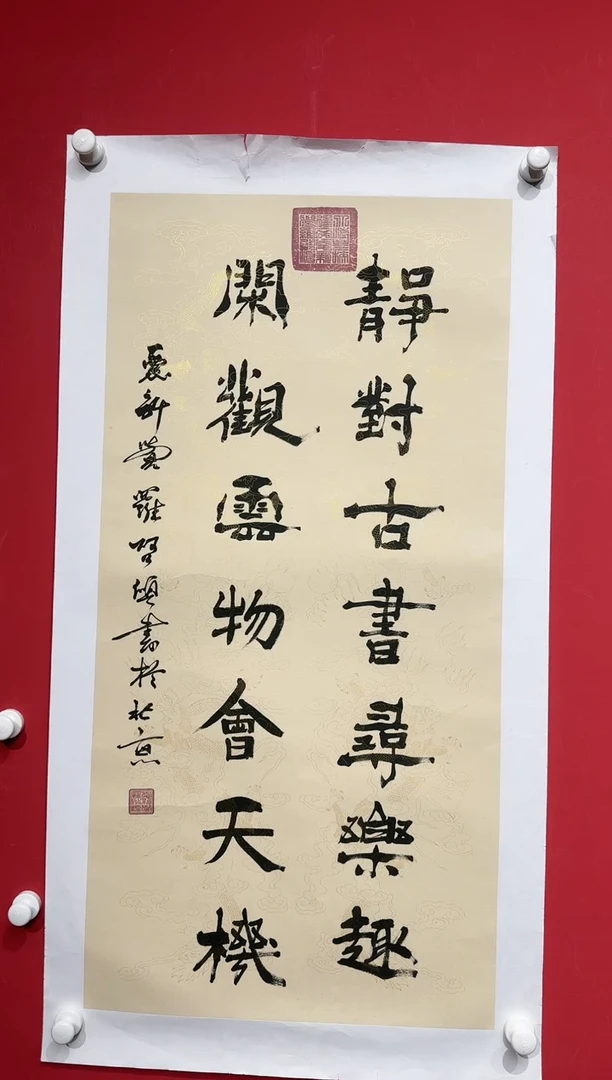 靜對古書尋樂趣
閑觀雲物會天機
愛新覺羅書於北京